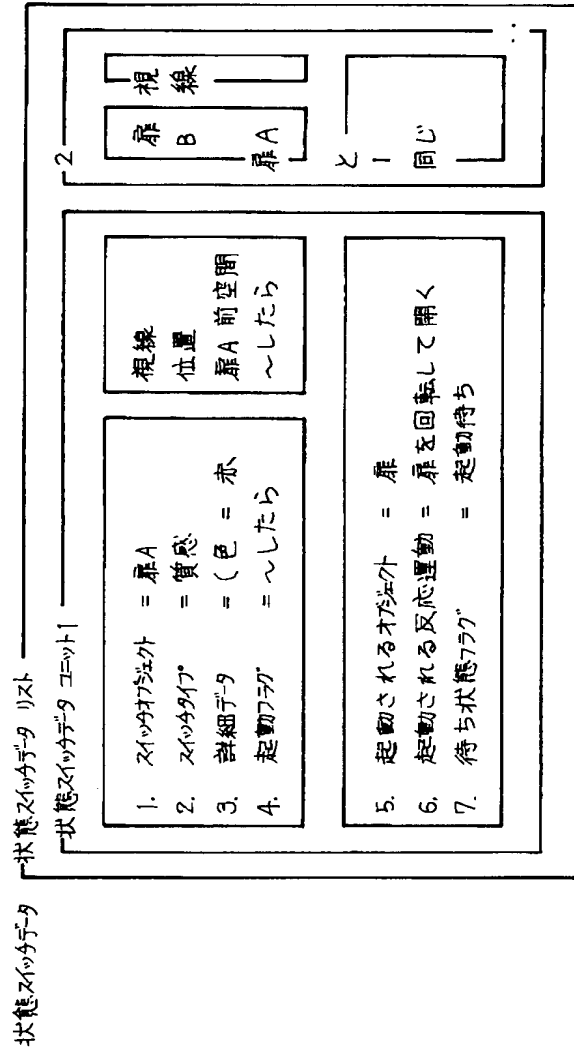 状態スイッチデータ
状態スイッチデータ リスト
状態スイッチデータ ユニット1
1. スイッチオブジェクト = 扉A
2. スイッチタイプ = 質感
3. 詳細データ = (色 = 赤、
4. 起動フラグ = ～したら
視線
位置
扉A前空間
～したら
5. 起動されるオブジェクト = 扉
6. 起動される反応運動 = 扉を回転して開く
7. 待ち状態フラグ = 起動待ち
2
扉B
視線
扉A
と
1
同じ
…